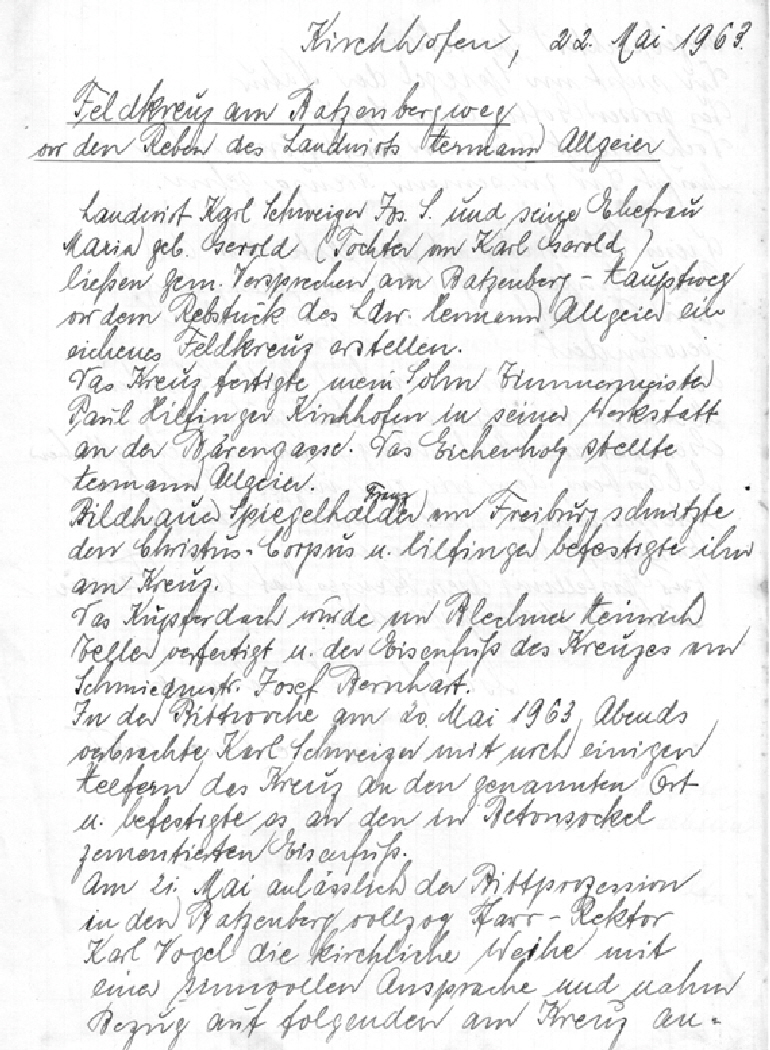 Kirchhofen, 22. Mai 1963.
Feldkreuz am Batzenbergweg
vor den Reben des Landwirts Hermann Allgeier
Landwirt Karl Schweizer Jos. S. und seine Ehefrau
Maria geb. Gerold (Tochter von Karl Gerold)
ließen gem. Versprechen am Batzenberg-Hauptweg
vor dem Rebstück des Ldw. Hermann Allgeier ein
eichenes Feldkreuz erstellen.
Das Kreuz fertigte mein Sohn Zimmermeister
Paul Hilfinger Kirchhofen in seiner Werkstatt
an der Bärengasse. Das Eichenholz stellte
Hermann Allgeier.
Bildhauer Franz Spiegelhalder von Freiburg schnitzte
den Christus-Corpus u. Hilfinger befestigte ihn
am Kreuz.
Das Kupferdach wurde von Blechner Heinrich
Zeller verfertigt u. der Eisenfuß des Kreuzes von
Schmiedmstr. Josef Bernhart.
In der Bittwoche am 20. Mai 1963, Abends
verbrachte Karl Schweizer mit noch einigen
Helfern das Kreuz an den genannten Ort
u. befestigte es an den in Betonsockel
zementierten Eisenfuß.
Am 21. Mai anlässlich der Bittprozession
in den Batzenberg vollzog Pfarr-Rektor
Karl Vogel die kirchliche Weihe mit
einer sinnvollen Ansprache und nahm
Bezug auf folgenden am Kreuz an-